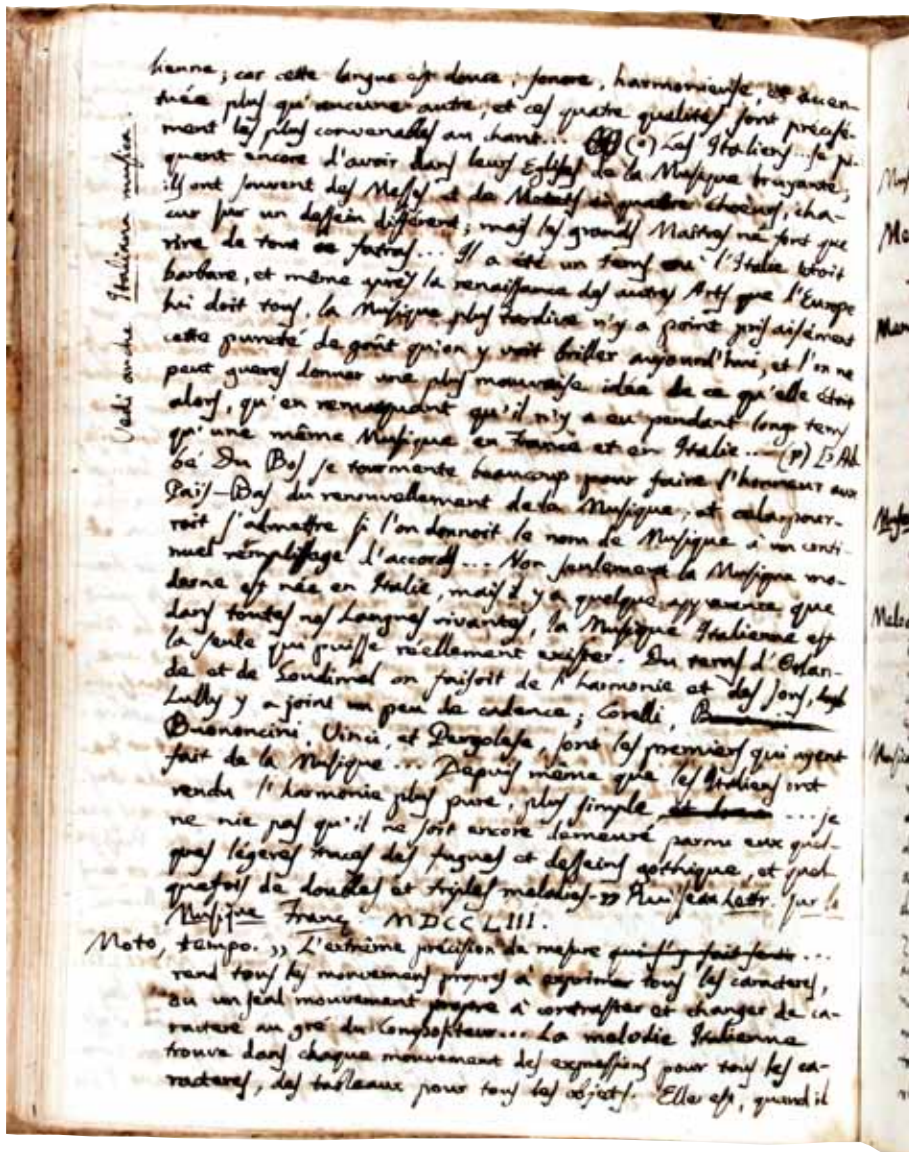 Vedi anche Italiana musica.
lienne; car cette langue est douce, sonore, harmonieuse, et accen-
tuée plus qu'aucune autre, et ces quatre qualités sont précisé-
ment les plus convenables au chant... (o) Les Italiens... se pi-
quent encore d'avoir dans leurs Eglises de la Musique bruyante,
ils ont souvent des Messes et de Motets à quatre choeurs, cha-
cur sur un dessein différent; mais les grands Maîtres ne font que
rire de tout ce fatras... Il a été un tems où l'Italie étoit
barbare, et même après la renaissance des autres Arts que l'Europe
lui doit tous, la Musique plus tardive n'y a point pris aisément
cette pureté de goût qu'on y voit briller aujourd'hui, et l'on ne
peut gueres donner une plus mauvaise idée de ce qu'elle étoit
alors, qu'en remarquant qu'il n'y a eu pendant long tems
qu'une même Musique en France et en Italie... (p) L'Ab-
bé Du Bos se tourmente beaucoup pour faire l'honneur aux
Païs-Bas du renouvellement de la Musique, et cela pour-
roit s'admettre si l'on donnoit le nom de Musique à un conti-
nuel remplissage d'accords... Non seulement la Musique mo-
derne est née en Italie, mais il y a quelque apparence que
dans toutes nos Langues vivantes, la Musique Italienne est
la seule qui puisse réellement exister. Du tems d'Orlan-
de et de Goudimel on faisoit de l'harmonie et des sons,
Lully y a joint un peu de cadence; Corelli,
Buononcini, Vinci, et Pergolese, sont les premiers qui ayent
fait de la Musique... Depuis même que les Italiens ont
rendu l'harmonie plus pure, plus simple ... je
ne nie pas qu'il ne soit encore demeuré parmi eux quel-
ques légeres traces des fugues et desseins gothique, et quel
quefois de doubles et triples melodies. » Rousseau Lettr. sur la
Musique Franç. MDCCLIII.
Moto, tempo. » L'extrême précision de mesure qui s'y fait sentir ...
rend tous les mouvemens propres à exprimer tous les caracteres,
ou un seul mouvement propre à contraster et changer de ca-
ractere au gré du Compositeur... La melodie Italienne
trouve dans chaque mouvement des expressions pour tous les ca-
racteres, des tableaux pour tous les objects. Elle est, quand il